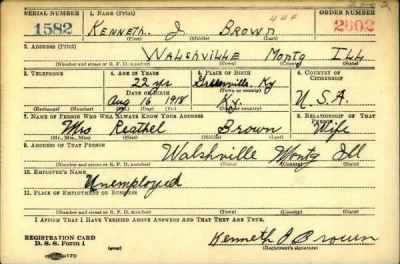 SERIAL NUMBER 1. NAME (Print) ORDER NUMBER
1582 KENNETH. J. BROWN 2902
(First) (Middle) (Last)
2. ADDRESS (Print)
WALSHVILLE MONTG ILL
(Number and street or R. F. D. number) (Town) (County) (State)
3. TELEPHONE 4. AGE IN YEARS 5. PLACE OF BIRTH 6. COUNTRY OF CITIZENSHIP
22 yr Greenville, Ky
DATE OF BIRTH (Town or county)
Aug 16 1918 Ky. U.S.A.
(Exchange) (Number) (Mo.) (Day) (Yr.) (State or country)
7. NAME OF PERSON WHO WILL ALWAYS KNOW YOUR ADDRESS 8. RELATIONSHIP OF THAT PERSON
Mrs Brown Wife
(Mr., Mrs., Miss) (First) (Middle) (Last)
9. ADDRESS OF THAT PERSON
Walshville Montg Ill
(Number and street or R. F. D. number) (Town) (County) (State)
10. EMPLOYER'S NAME
Unemployed
11. PLACE OF EMPLOYMENT OR BUSINESS
(Number and street or R. F. D. number) (Town) (County) (State)
I AFFIRM THAT I HAVE VERIFIED ABOVE ANSWERS AND THAT THEY ARE TRUE.
REGISTRATION CARD
D. S. S. Form 1 (over) Kenneth J Brown
(Registrant's signature)